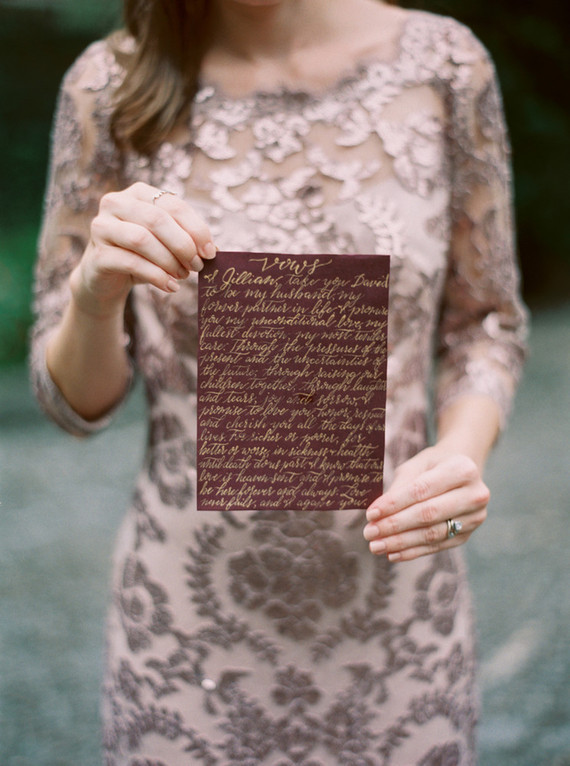 vows
I Gillian, take you David
to be my husband, my
forever partner in life. I promise
you my unconditional love, my
fullest devotion, my most tender
care. Through the pressures of the
present and the uncertainties of
the future, through raising our
children together, through laughter
and tears, joy and sorrow, I
promise to love you, honor, respect
and cherish you all the days of our
lives. For richer or poorer, for
better or worse, in sickness & health
until death do us part. I know that our
love is heaven-sent and I promise to
be here forever and always. Love
never fails, and it again you.